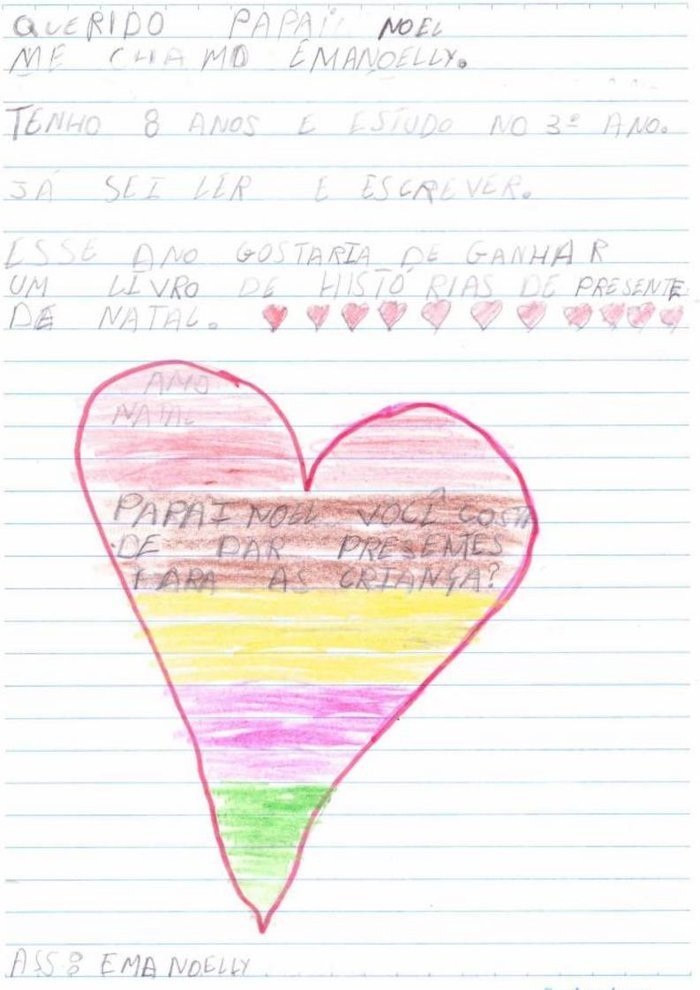 QUERIDO PAPAI NOEL
ME CHAMO EMANOELLY.
TENHO 8 ANOS E ESTUDO NO 3º ANO.
JÁ SEI LER E ESCREVER.
ESSE ANO GOSTARIA DE GANHAR
UM LIVRO DE HISTÓRIAS DE PRESENTE
DE NATAL.
AMO
NATAL
PAPAI NOEL VOCÊ GOSTA
DE DAR PRESENTES
PARA AS CRIANÇA?
ASS: EMANOELLY